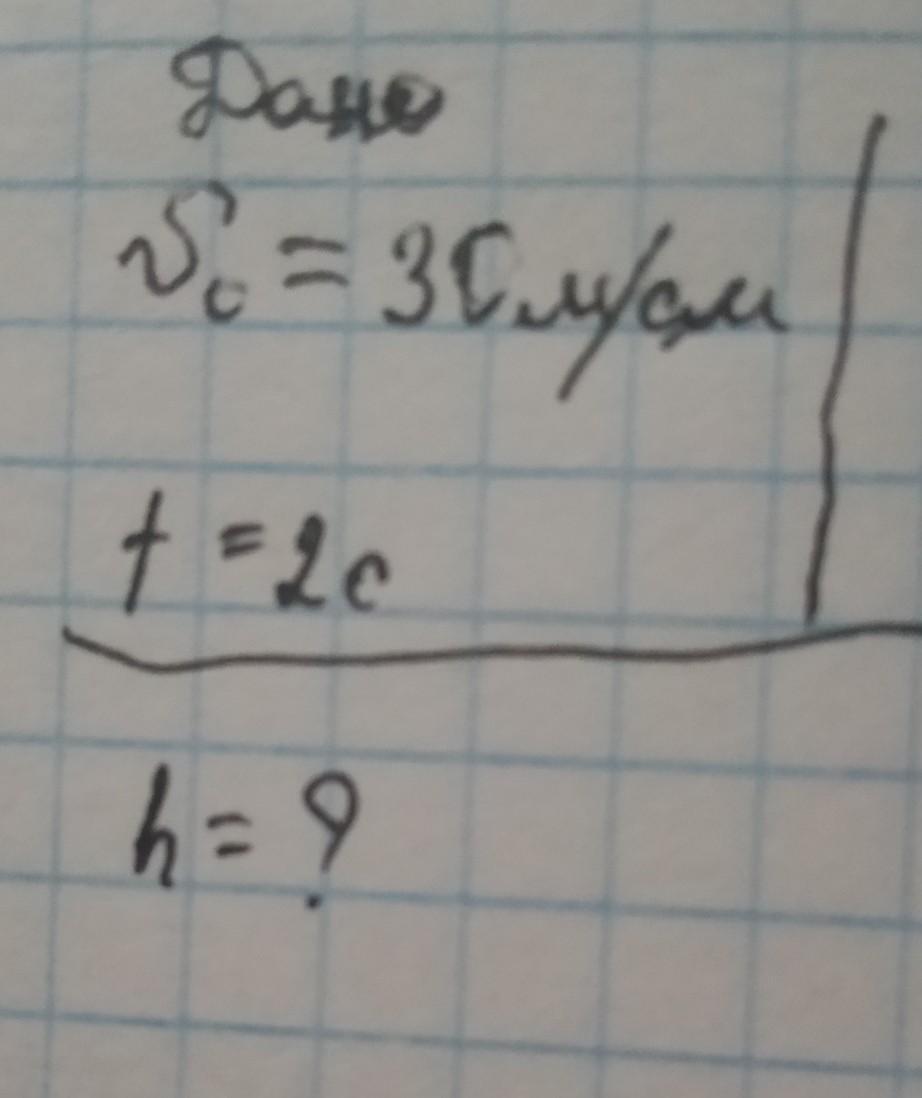 Дано
v₀ = 30 м/см
t = 2с
h = ?